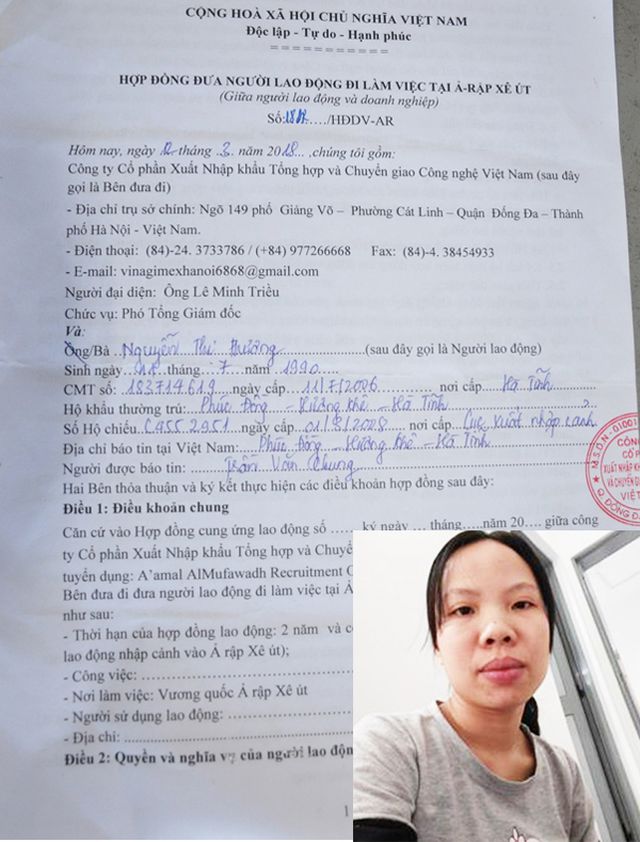 CỘNG HOÀ XÃ HỘI CHỦ NGHĨA VIỆT NAM
Độc lập - Tự do - Hạnh phúc
===========
HỢP ĐỒNG ĐƯA NGƯỜI LAO ĐỘNG ĐI LÀM VIỆC TẠI Ả-RẬP XÊ ÚT
(Giữa người lao động và doanh nghiệp)
Số: …./HĐDV-AR
Hôm nay, ngày 12 tháng .3. năm 2018... ,chúng tôi gồm:
Công ty Cổ phần Xuất Nhập khẩu Tổng hợp và Chuyển giao Công nghệ Việt Nam (sau đây
gọi là Bên đưa đi)
- Địa chỉ trụ sở chính: Ngõ 149 phố Giảng Võ – Phường Cát Linh – Quận Đống Đa – Thành
phố Hà Nội - Việt Nam.
- Điện thoại: (84)-24. 3733786 / (+84) 977266668 Fax: (84)-4. 38454933
- E-mail: vinagimexhanoi6868@gmail.com
Người đại diện: Ông Lê Minh Triều
Chức vụ: Phó Tổng Giám đốc
Và:
Ông/Bà ..Nguyễn Thị Hương..................(sau đây gọi là Người lao động)
Sinh ngày.. ..tháng..7..năm 1990....
CMT số: 183714619...ngày cấp...11/7/2006............... nơi cấp..Hà Tĩnh......
Hộ khẩu thường trú: Phúc Đồng – Hương Khê – Hà Tĩnh
Số Hộ chiếu C4552951 ngày cấp 01/ /2018 nơi cấp Cục xuất nhập cảnh
Địa chỉ báo tin tại Việt Nam:...Phúc Đồng – Hương Khê – Hà Tĩnh
Người được báo tin: ........Trần Văn Chung......
Hai Bên thỏa thuận và ký kết thực hiện các điều khoản hợp đồng sau đây:
Điều 1: Điều khoản chung
Căn cứ vào Hợp đồng cung ứng lao động số …… ký ngày … tháng…..năm 20…. giữa công
ty Cổ phần Xuất Nhập khẩu Tổng hợp và Chuyể
tuyển dụng: A'amal AlMufawadh Recruitment O
Bên đưa đi đưa người lao động đi làm việc tại Ả
như sau:
- Thời hạn của hợp đồng lao động: 2 năm và c
lao động nhập cảnh vào Ả rập Xê út);
- Công việc: ……………………………
- Nơi làm việc: Vương quốc Ả rập Xê út
- Người sử dụng lao động: ……………………
- Địa chỉ: ……………………………
Điều 2: Quyền và nghĩa vụ của người lao độn
1
M.S.D.N: 01001
CÔN
CỔ P
XUẤT NHẬP KH
VÀ CHUYỂN GIA
VIỆT
Q. ĐỐNG ĐA